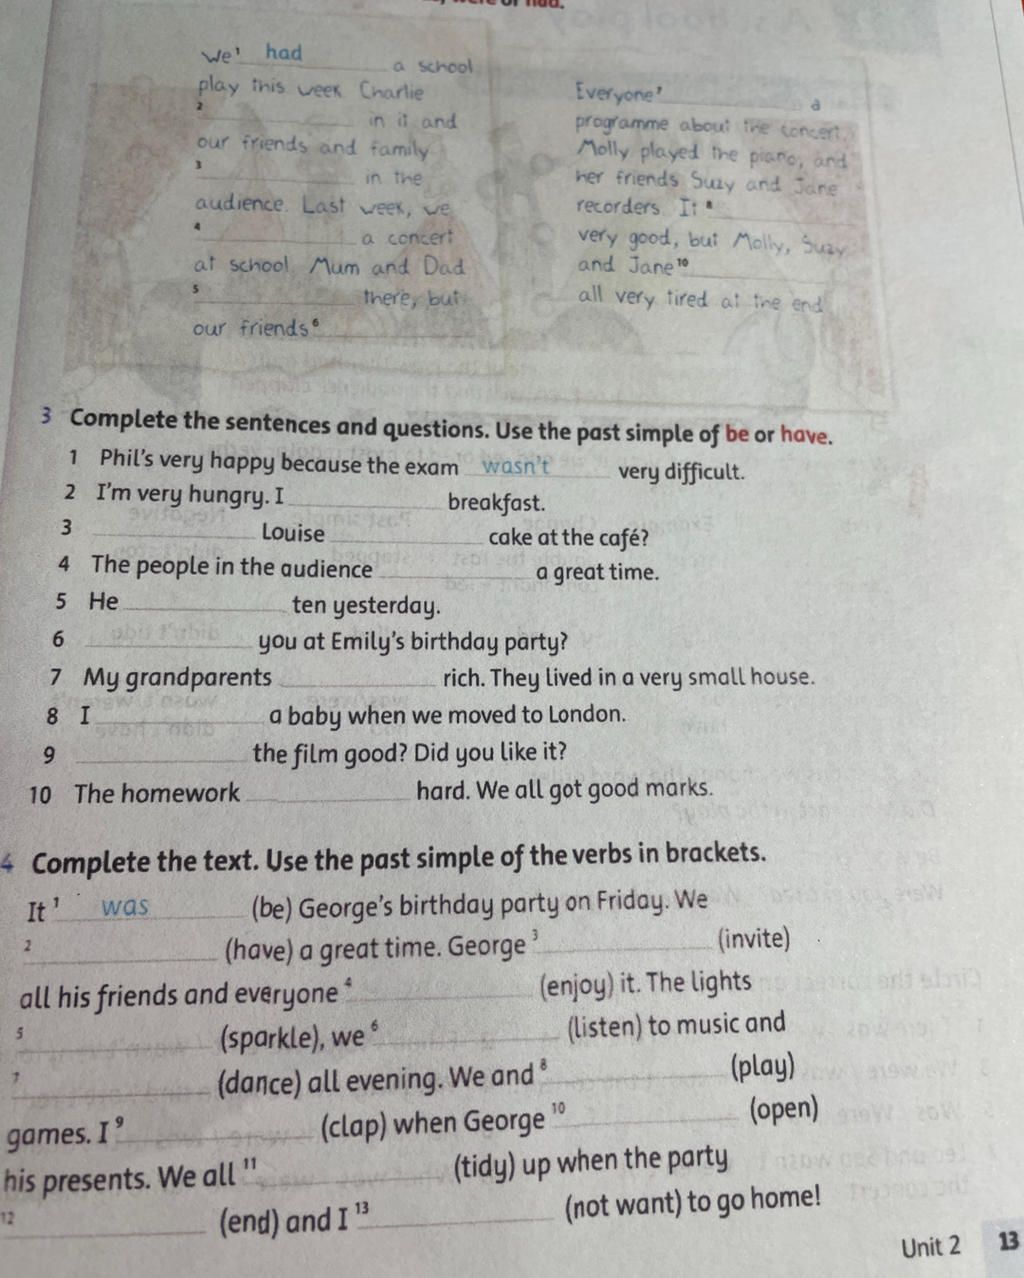 were or had.
We¹ had a school
play this week. Charlie
2 in it and
our friends and family
3 in the
audience. Last week, we
4 a concert
at school. Mum and Dad
5 there, but
our friends⁶
Everyone⁷ a
programme about the concert.
Molly played the piano, and
her friends Suzy and Jane
recorders. It ⁸
very good, but Molly, Suzy
and Jane¹⁰
all very tired at the end
3 Complete the sentences and questions. Use the past simple of be or have.
1 Phil's very happy because the exam wasn't very difficult.
2 I'm very hungry. I breakfast.
3 Louise cake at the café?
4 The people in the audience a great time.
5 He ten yesterday.
6 you at Emily's birthday party?
7 My grandparents rich. They lived in a very small house.
8 I a baby when we moved to London.
9 the film good? Did you like it?
10 The homework hard. We all got good marks.
4 Complete the text. Use the past simple of the verbs in brackets.
It ¹ was (be) George's birthday party on Friday. We
2 (have) a great time. George ³ (invite)
all his friends and everyone ⁴ (enjoy) it. The lights
5 (sparkle), we ⁶ (listen) to music and
7 (dance) all evening. We and ⁸ (play)
games. I ⁹ (clap) when George ¹⁰ (open)
his presents. We all ¹¹ (tidy) up when the party
12 (end) and I ¹³ (not want) to go home!
Unit 2 13